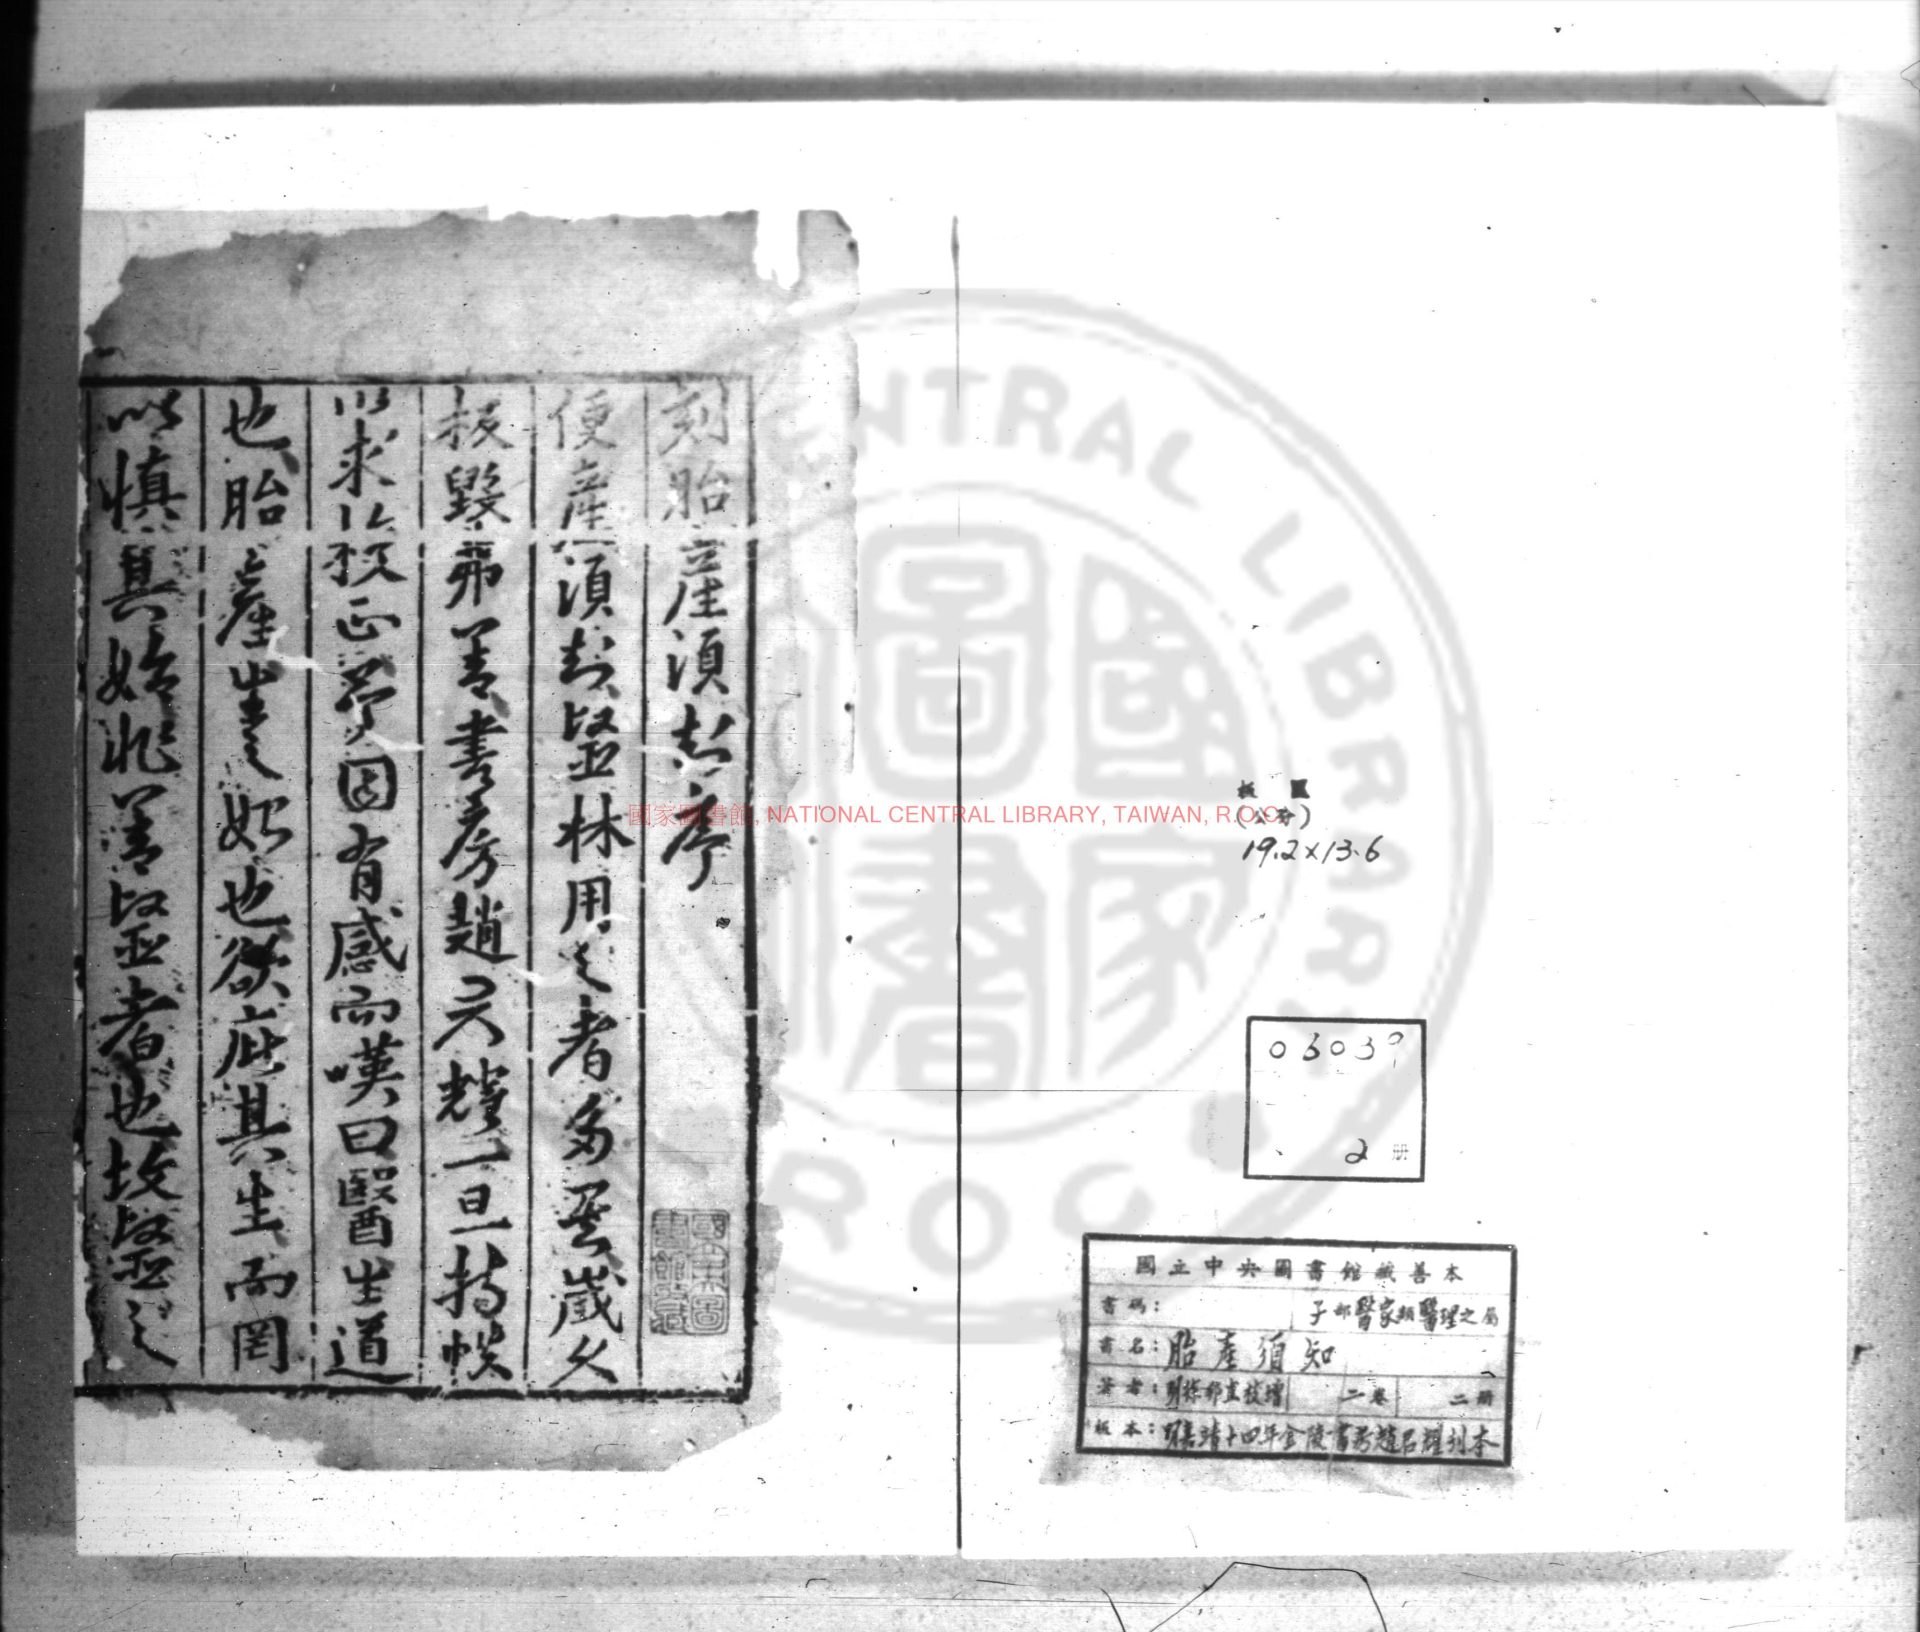 刻胎產須知序
便產須知毉林用之者多矣歲久
板毀弗善書房趙君耀一旦持帙
以求校正予因有感而嘆曰醫生道
也胎產生之始也欲庇其生而罔
以慎其始非善毉者也故毉之
國家圖書館, NATIONAL CENTRAL LIBRARY, TAIWAN, R.O.C
板匡
(公分)
19.2×13.6
0603
2 冊
國立中央圖書館藏善本
書碼： 子部醫家類醫理之屬
書名：胎產須知
著者： 二卷 二冊
板本：明嘉靖十四年金陵書房趙君耀刊本
NTRAL LIBRARY
R.O.C
國家圖書
國立中央圖書館藏